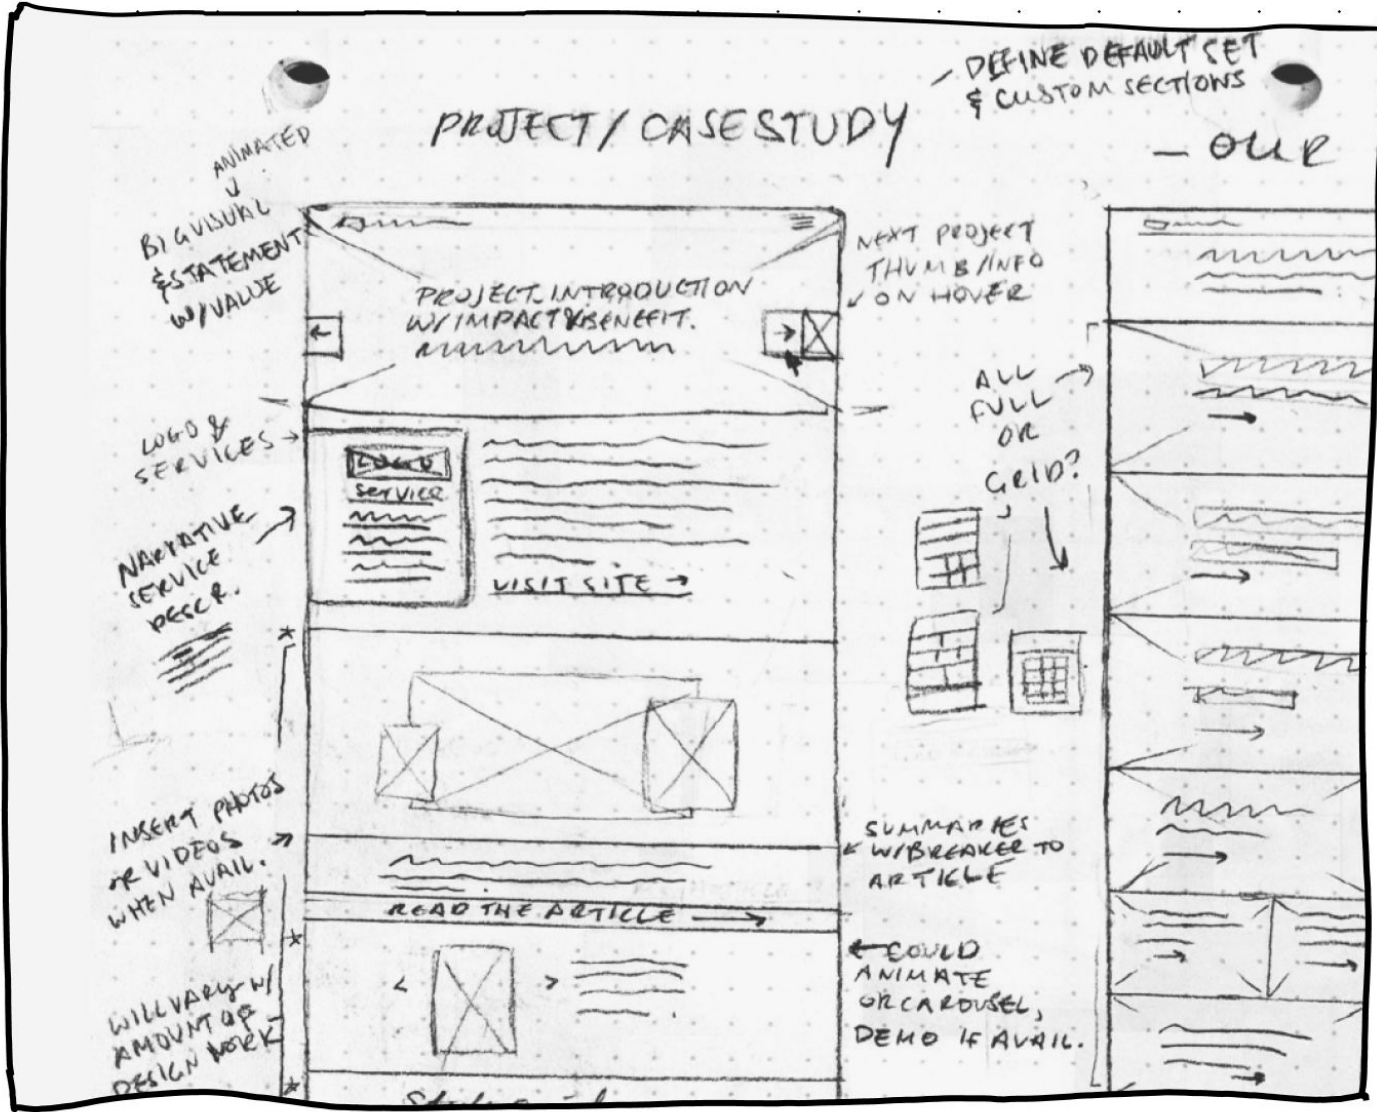 - DEFINE DEFAULT SET
& CUSTOM SECTIONS
PROJECT / CASE STUDY
- OUR
ANIMATED
BIG VISUAL
& STATEMENT
W/ VALUE
PROJECT INTRODUCTION
W/ IMPACT & BENEFIT.
NEXT PROJECT
THUMB/INFO
ON HOVER
ALL
FULL
OR
GRID?
LOGO &
SERVICES
LOGO
SERVICE
NARRATIVE
SERVICE
DESCR.
VISIT SITE →
INSERT PHOTOS
OR VIDEOS
WHEN AVAIL.
SUMMARIES
W/ BREAKER TO
ARTICLE
READ THE ARTICLE →
< >
← COULD
ANIMATE
OR CAROUSEL,
DEMO IF AVAIL.
WILL VARY W/
AMOUNT OF
DESIGN WORK